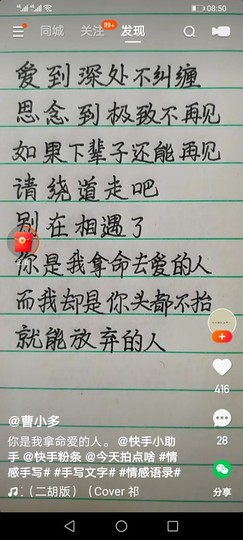 08:50
同城
关注
99+
发现
爱到深处不纠缠
思念到极致不再见
如果下辈子还能再见
请绕道走吧
别在相遇了
你是我拿命去爱的人
而我却是你头都不抬
就能放弃的人
416
28
分享
@曹小多
你是我拿命爱的人。@快手小助
手 @快手粉条 @今天拍点啥 #情
感手写# #手写文字# #情感语录#
（二胡版）（Cover 祁